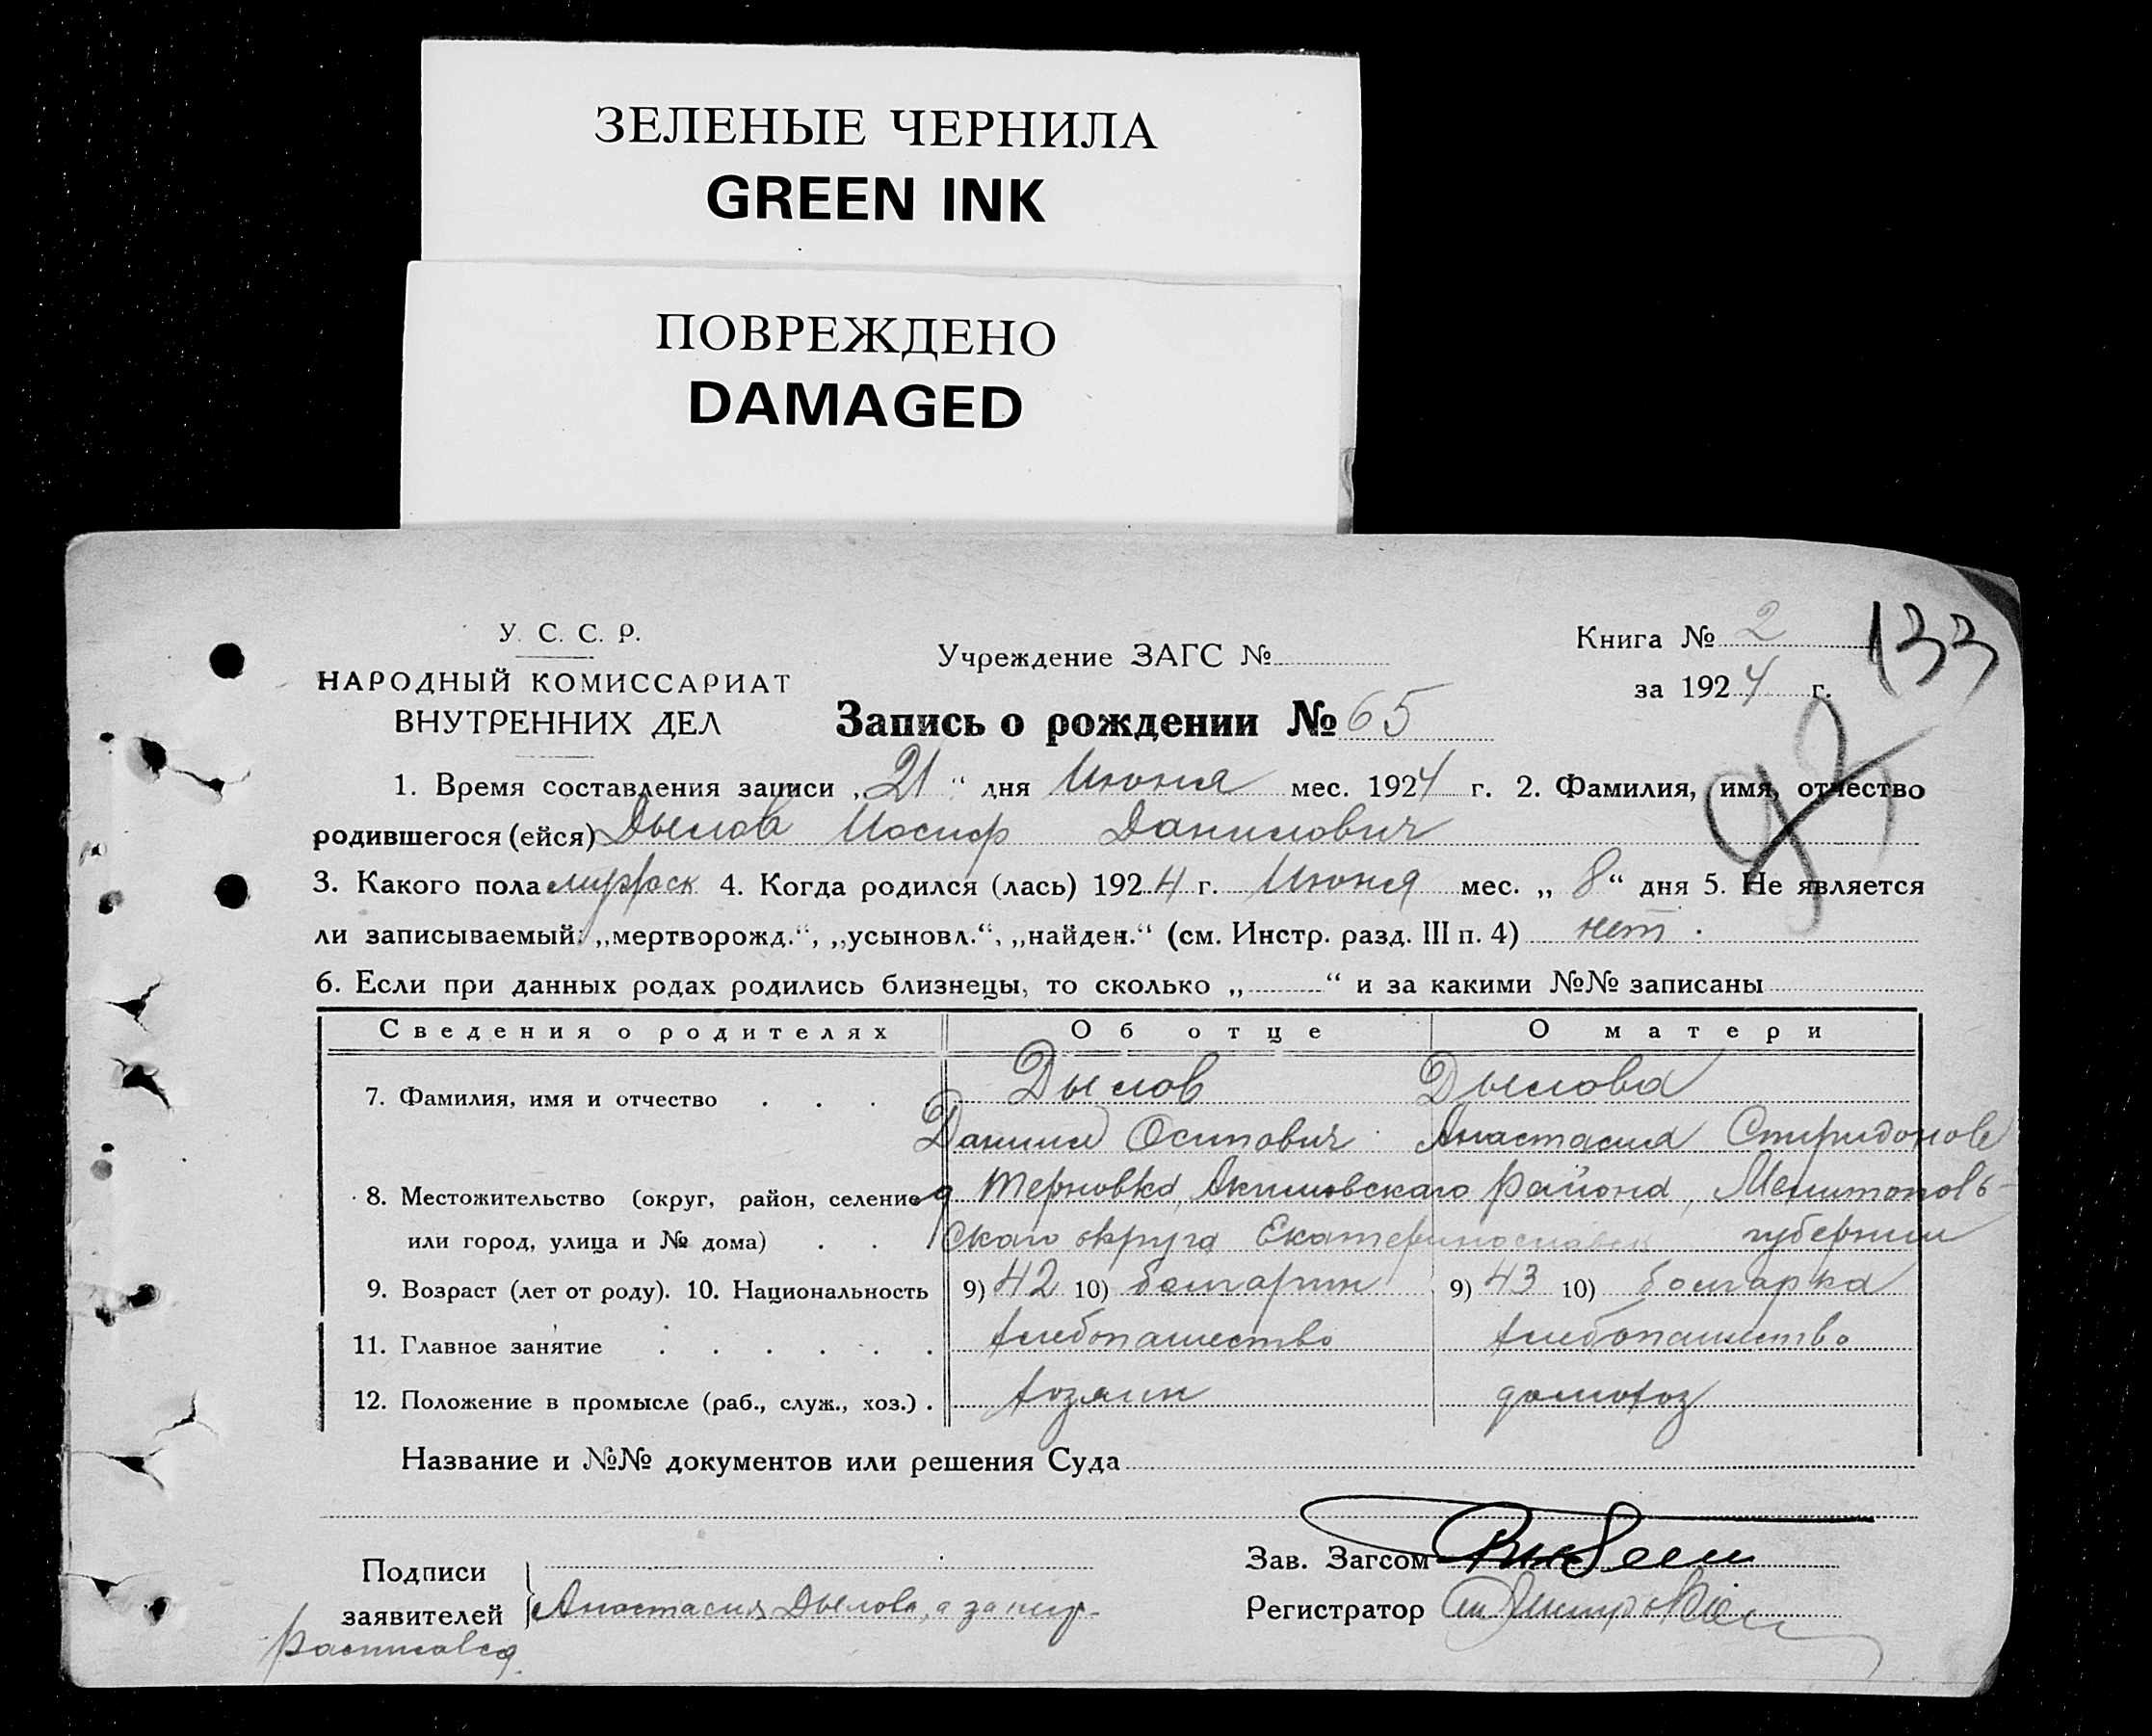 ЗЕЛЕНЫЕ ЧЕРНИЛА
GREEN INK
ПОВРЕЖДЕНО
DAMAGED
У. С. С. Р.
НАРОДНЫЙ КОМИССАРИАТ
ВНУТРЕННИХ ДЕЛ
Учреждение ЗАГС №
Книга № 2
133
за 1924 г.
Запись о рождении № 65
1. Время составления записи „21“ дня Июня мес. 1924 г. 2. Фамилия, имя, отчество
родившегося (ейся) Дылов Иосиф Данилович
3. Какого пола мужск 4. Когда родился (лась) 1924 г. Июня мес. „8“ дня 5. Не является
ли записываемый: „мертворожд.“, „усыновл.“, „найден.“ (см. Инстр. разд. III п. 4) нет.
6. Если при данных родах родились близнецы, то сколько „ “ и за какими №№ записаны
Сведения о родителях Об отце О матери
7. Фамилия, имя и отчество . . . . Дылов Дылова
Даниил Осипович Анастасия Спиридонов
8. Местожительство (округ, район, селение Терновка, Акимовскаго района, Мелитополь-
или город, улица и № дома) . . скаго округа Екатеринославск губернии
9. Возраст (лет от роду). 10. Национальность 9) 42 10) болгарин 9) 43 10) болгарка
11. Главное занятие . . . . . . хлебопашество хлебопашество
12. Положение в промысле (раб., служ., хоз.) . хозяин домохоз
Название и №№ документов или решения Суда
Подписи
заявителей Анастасия Дылова, а за негр.
расписался
Зав. Загсом
Регистратор